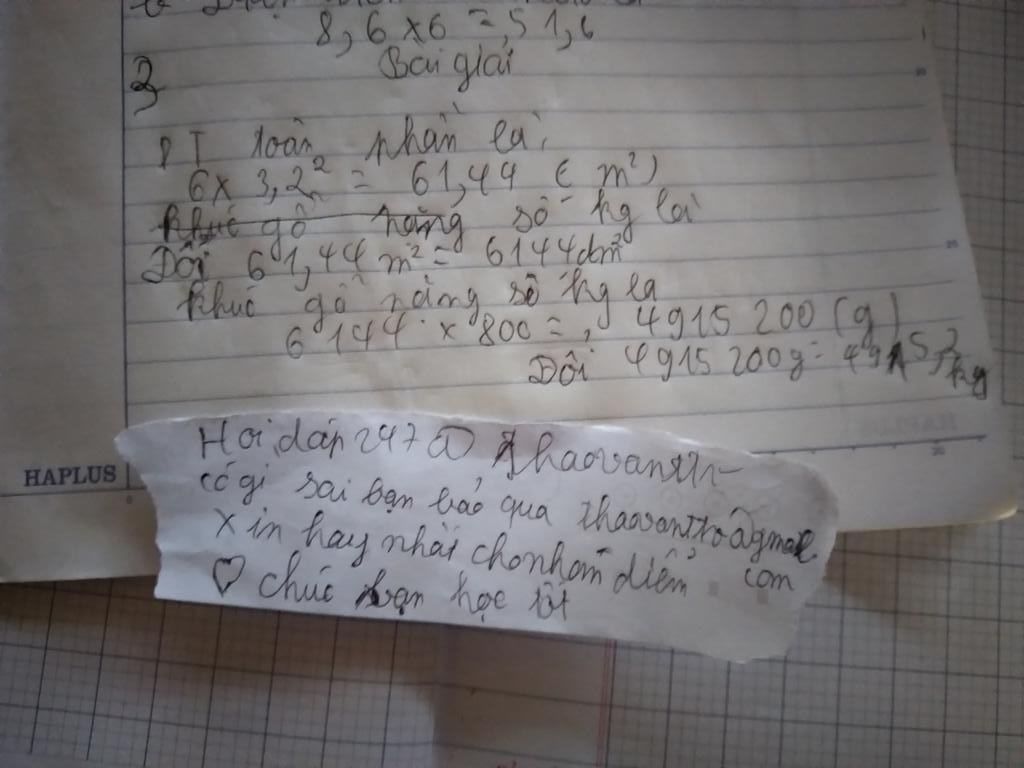 8,6 x 6 = 51,6
3
Bài giải
DT toàn phần là:
6 x 3,2² = 61,44 (m²)
Khúc gỗ nặng số kg là
Đổi 61,44 m² = 6144dm²
Khúc gỗ nặng số kg là
6144 x 800 = 4915 200 (g)
Đổi 4915 200g = 4915,2 kg
HAPLUS
Hỏi đáp 247
có gì sai bạn bảo qua
Xin hay nhất cho nhóm điểm com
♡ chúc bạn học tốt